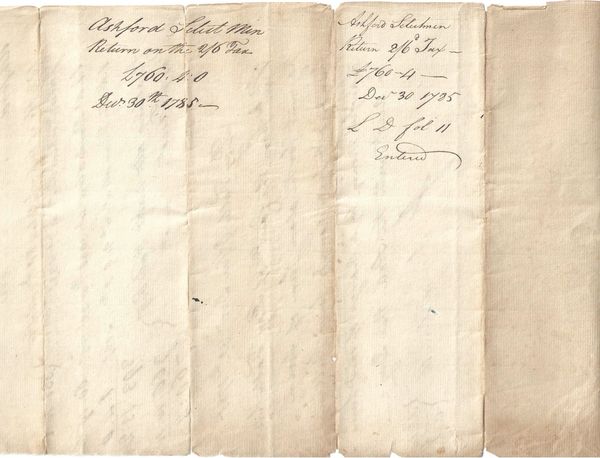 Ashford Select Men
Return on the 2/6 Tax
£760.4.0
Decr. 30th 1785
Ashford Selectmen
Return 2/6d Tax
£760-4
Decr 30 1785
L D fol 11
Entered